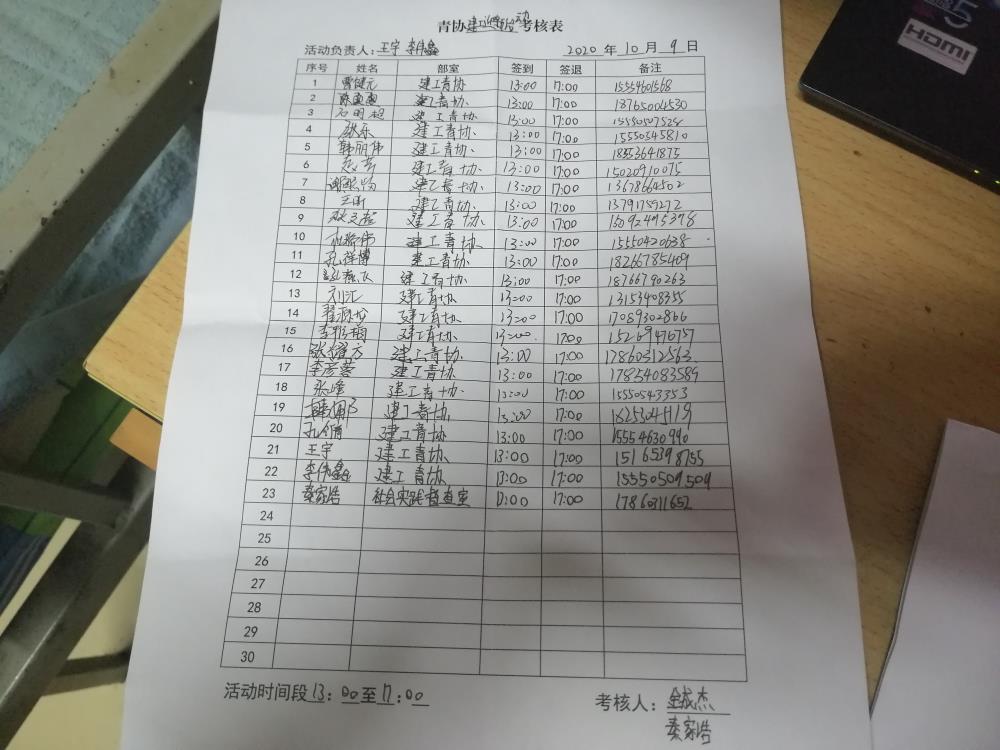 青协建工学院活动考核表
活动负责人：王宇 李伟鑫 2020 年 10 月 9 日
序号 姓名 部室 签到 签退 备注
1 曹健元 建工青协 13:00 17:00 15554601568
2 建工青协 13:00 17:00 18765004530
3 石明超 建工青协 13:00 17:00 15550507528
4 张东 建工青协 13:00 17:00 15550345810
5 韩丽伟 建工青协 13:00 17:00 18553641875
6 建工青协 13:00 17:00 15020910075
7 建工青协 13:00 17:00 13678664502
8 建工青协 13:00 17:00 13791759272
9 建工青协 13:00 17:00 15092475378
10 建工青协 13:00 17:00 15550420638
11 孔祥博 建工青协 13:00 17:00 18266785409
12 建工青协 13:00 17:00 18766790263
13 刘汇 建工青协 13:00 17:00 13153408355
14 建工青协 13:00 17:00 17089302866
15 李彤桐 建工青协 13:00 17:00 15269476757
16 张耀方 建工青协 13:00 17:00 17860312563
17 李彦蓉 建工青协 13:00 17:00 17854083589
18 张峰 建工青协 13:00 17:00 15550543353
19 建工青协 13:00 17:00
20 孔倩 建工青协 13:00 17:00 15554630990
21 王宇 建工青协 13:00 17:00 15165398755
22 李伟鑫 建工青协 13:00 17:00 15550509509
23 秦家浩 社会实践督查室 13:00 17:00 17860311652
24
25
26
27
28
29
30
活动时间段 13：00 至 17：00 考核人：金成杰
秦家浩
5
HDMI